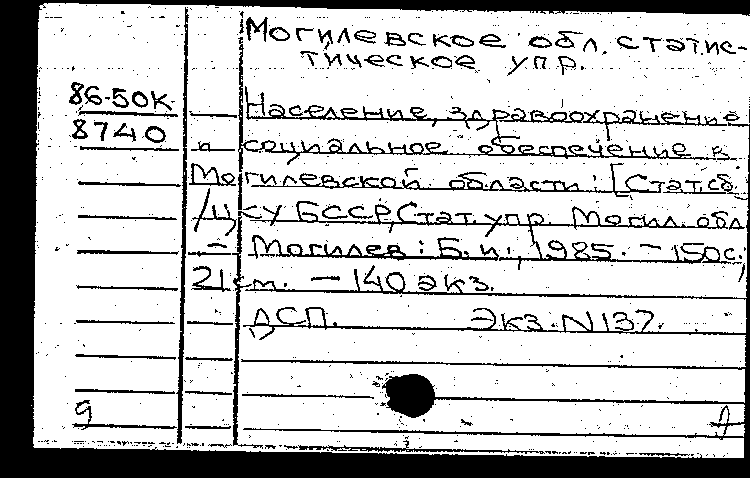 Могилевское обл. статис-
тическое упр.
86-50К
8740
Население, здравоохранение
и социальное обеспечение в
Могилевской области: [Стат.сб.
/ЦСУ БССР, Стат. упр. Могил. обл
- Могилев: Б.и., 1985. - 150с.;
21см. - 140 экз.
ДСП. Экз. N137.
9